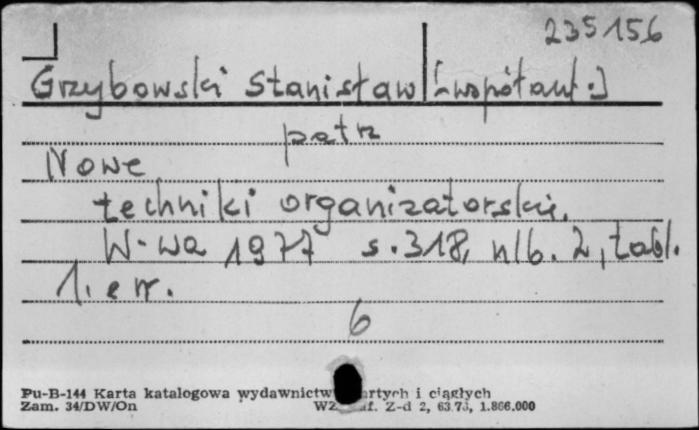 235156
Grzybowski Stanisław [współaut.]
patrz
Nowe
techniki organizatorskie.
W-wa 1977 s. 318, nlb. 2, tabl.
1. err.
6
Pu-B-144 Karta katalogowa wydawnictw i ciągłych
Zam. 34/DW/On Z-d 2, 63.73, 1.866.000